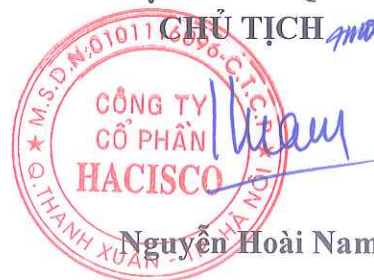 CHỦ TỊCH
M.S.D.N:0101116096-C.T.C.P
CÔNG TY
CỔ PHẦN
HACISCO
Q.THANH XUÂN - TP HÀ NỘI
Nguyễn Hoài Nam